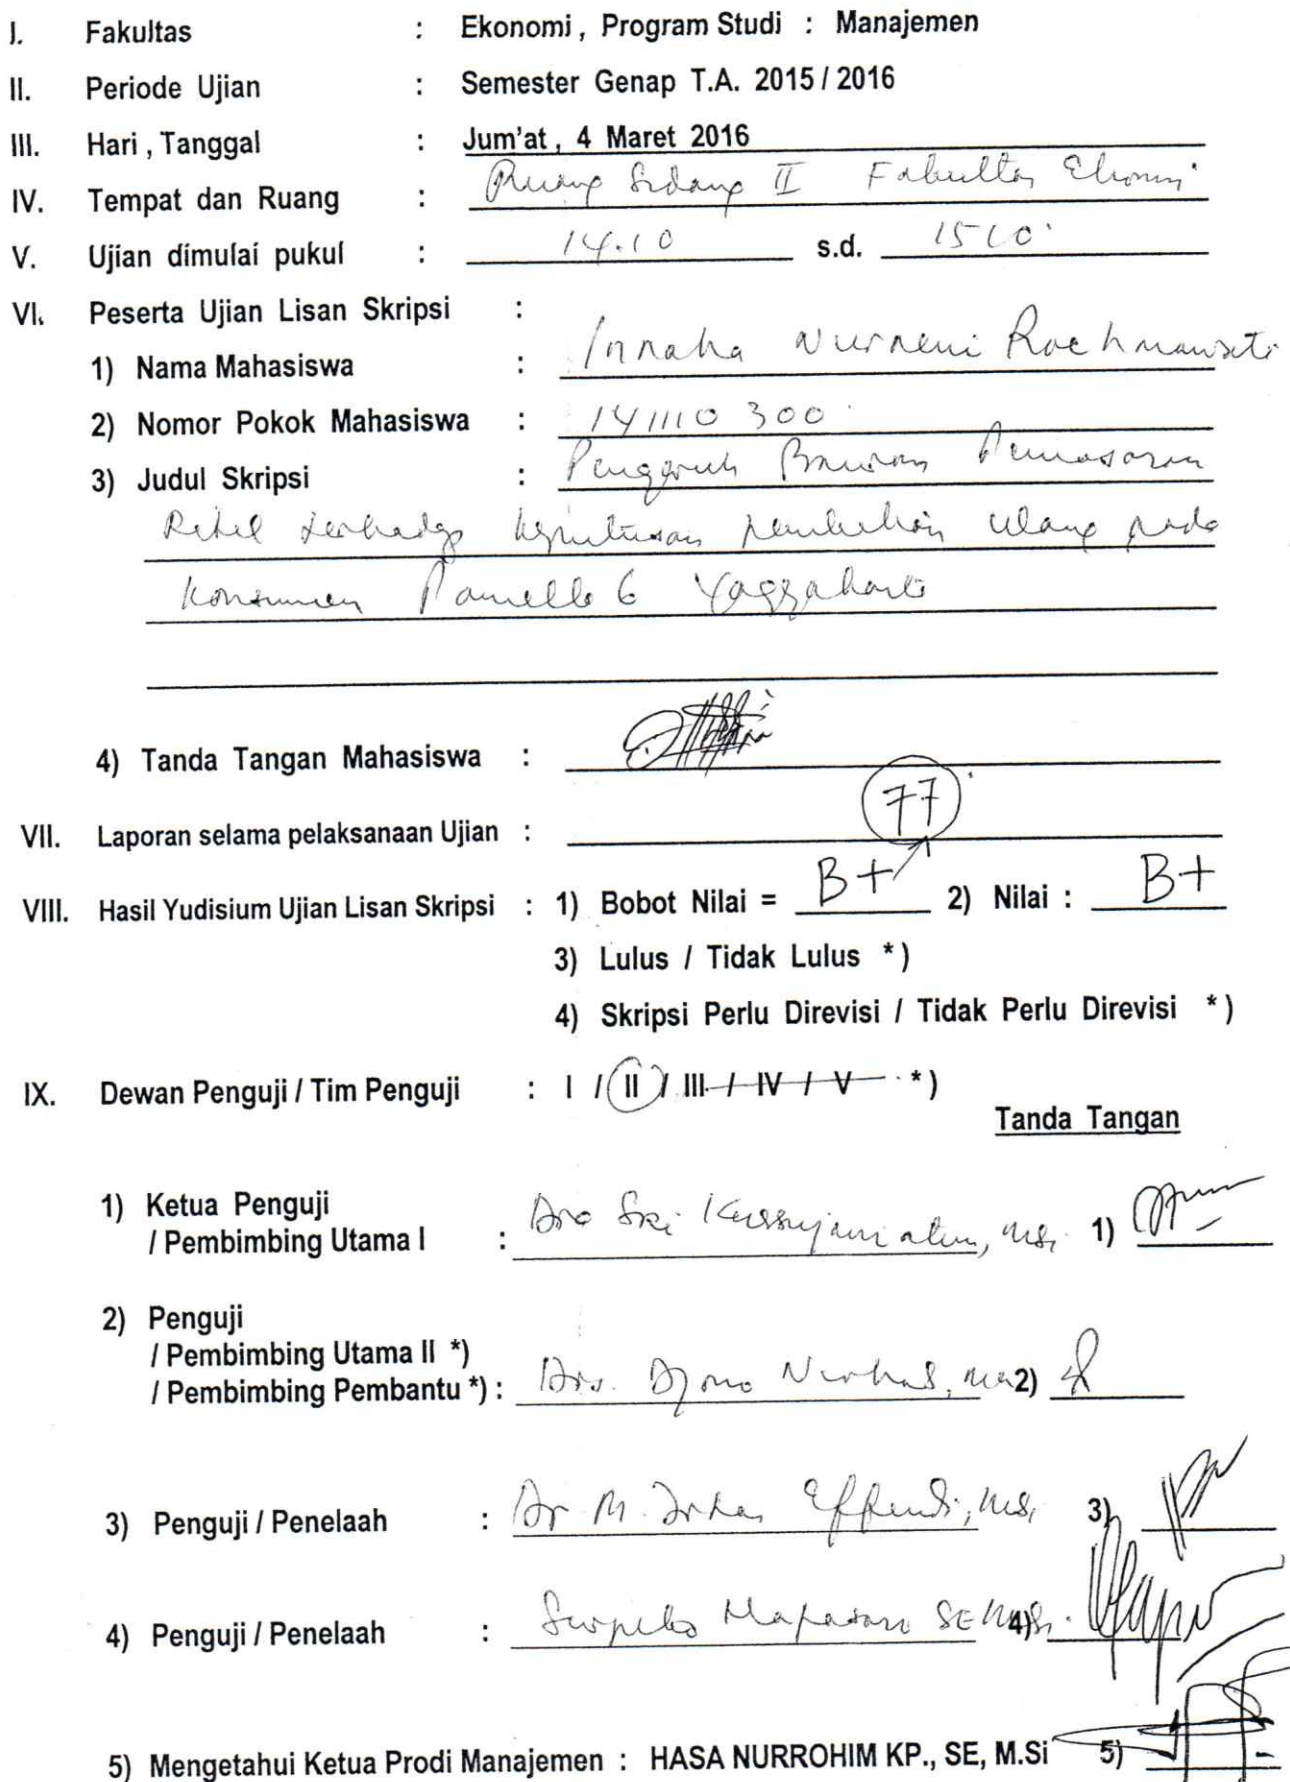 I. Fakultas : Ekonomi, Program Studi : Manajemen
II. Periode Ujian : Semester Genap T.A. 2015 / 2016
III. Hari, Tanggal : Jum'at, 4 Maret 2016
IV. Tempat dan Ruang : Ruang Sidang II Fakultas Ekonomi
V. Ujian dimulai pukul : 14.10 s.d. 15 10
VI. Peserta Ujian Lisan Skripsi :
1) Nama Mahasiswa : Innaha Nurneni Rochmawati
2) Nomor Pokok Mahasiswa : 141110 300
3) Judul Skripsi : Pengaruh Bauran Pemasaran
Ritel terhadap keputusan pembelian ulang pada
konsumen Pamella 6 Yogyakarta
4) Tanda Tangan Mahasiswa :
77
VII. Laporan selama pelaksanaan Ujian :
VIII. Hasil Yudisium Ujian Lisan Skripsi : 1) Bobot Nilai = B+ 2) Nilai : B+
3) Lulus / Tidak Lulus *)
4) Skripsi Perlu Direvisi / Tidak Perlu Direvisi *)
IX. Dewan Penguji / Tim Penguji : I / II / III / IV / V *)
Tanda Tangan
1) Ketua Penguji
/ Pembimbing Utama I : Dra Sri Kussujaniatun, MSi 1)
2) Penguji
/ Pembimbing Utama II *)
/ Pembimbing Pembantu *) : Drs. 2)
3) Penguji / Penelaah : Dr M. Irhas Effendi, MSi 3)
4) Penguji / Penelaah : SE MSi. 4)
5) Mengetahui Ketua Prodi Manajemen : HASA NURROHIM KP., SE, M.Si 5)